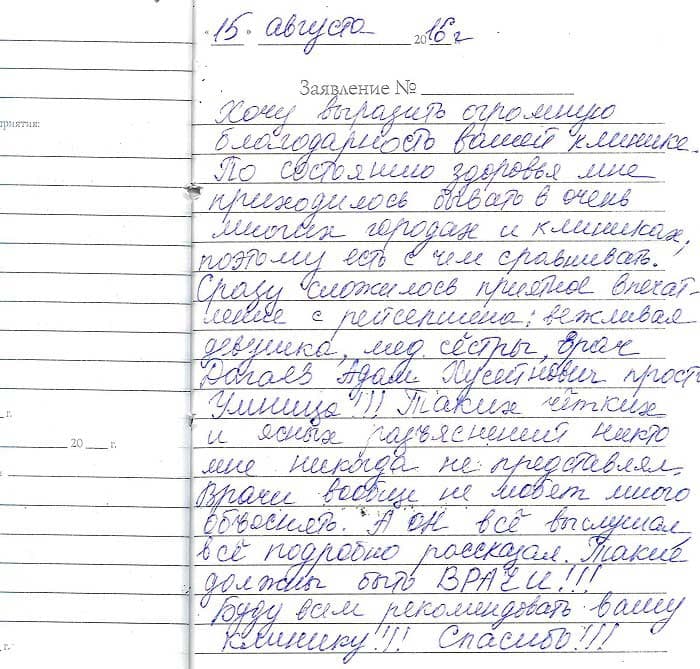 "15" августа 2016 г
Заявление №
Хочу выразить огромную
благодарность вашей клинике.
По состоянию здоровья мне
приходилось бывать в очень
многих городах и клиниках,
поэтому есть с чем сравнивать.
Сразу сложилось приятное впечат-
ление с рейсепшена: вежливая
девушка, мед. сёстры, врач
Дагаев Адам Хусейнович прост
Умница!!! Таких чётких
и ясных разъяснений никто
мне никогда не представлял.
Врачи вообще не любят много
объяснять. А он всё выслушал,
всё подробно рассказал. Такие
должны быть ВРАЧИ!!!
Буду всем рекомендовать вашу
клинику!!! Спасибо!!!
приятия:
г.
20 г.
г.